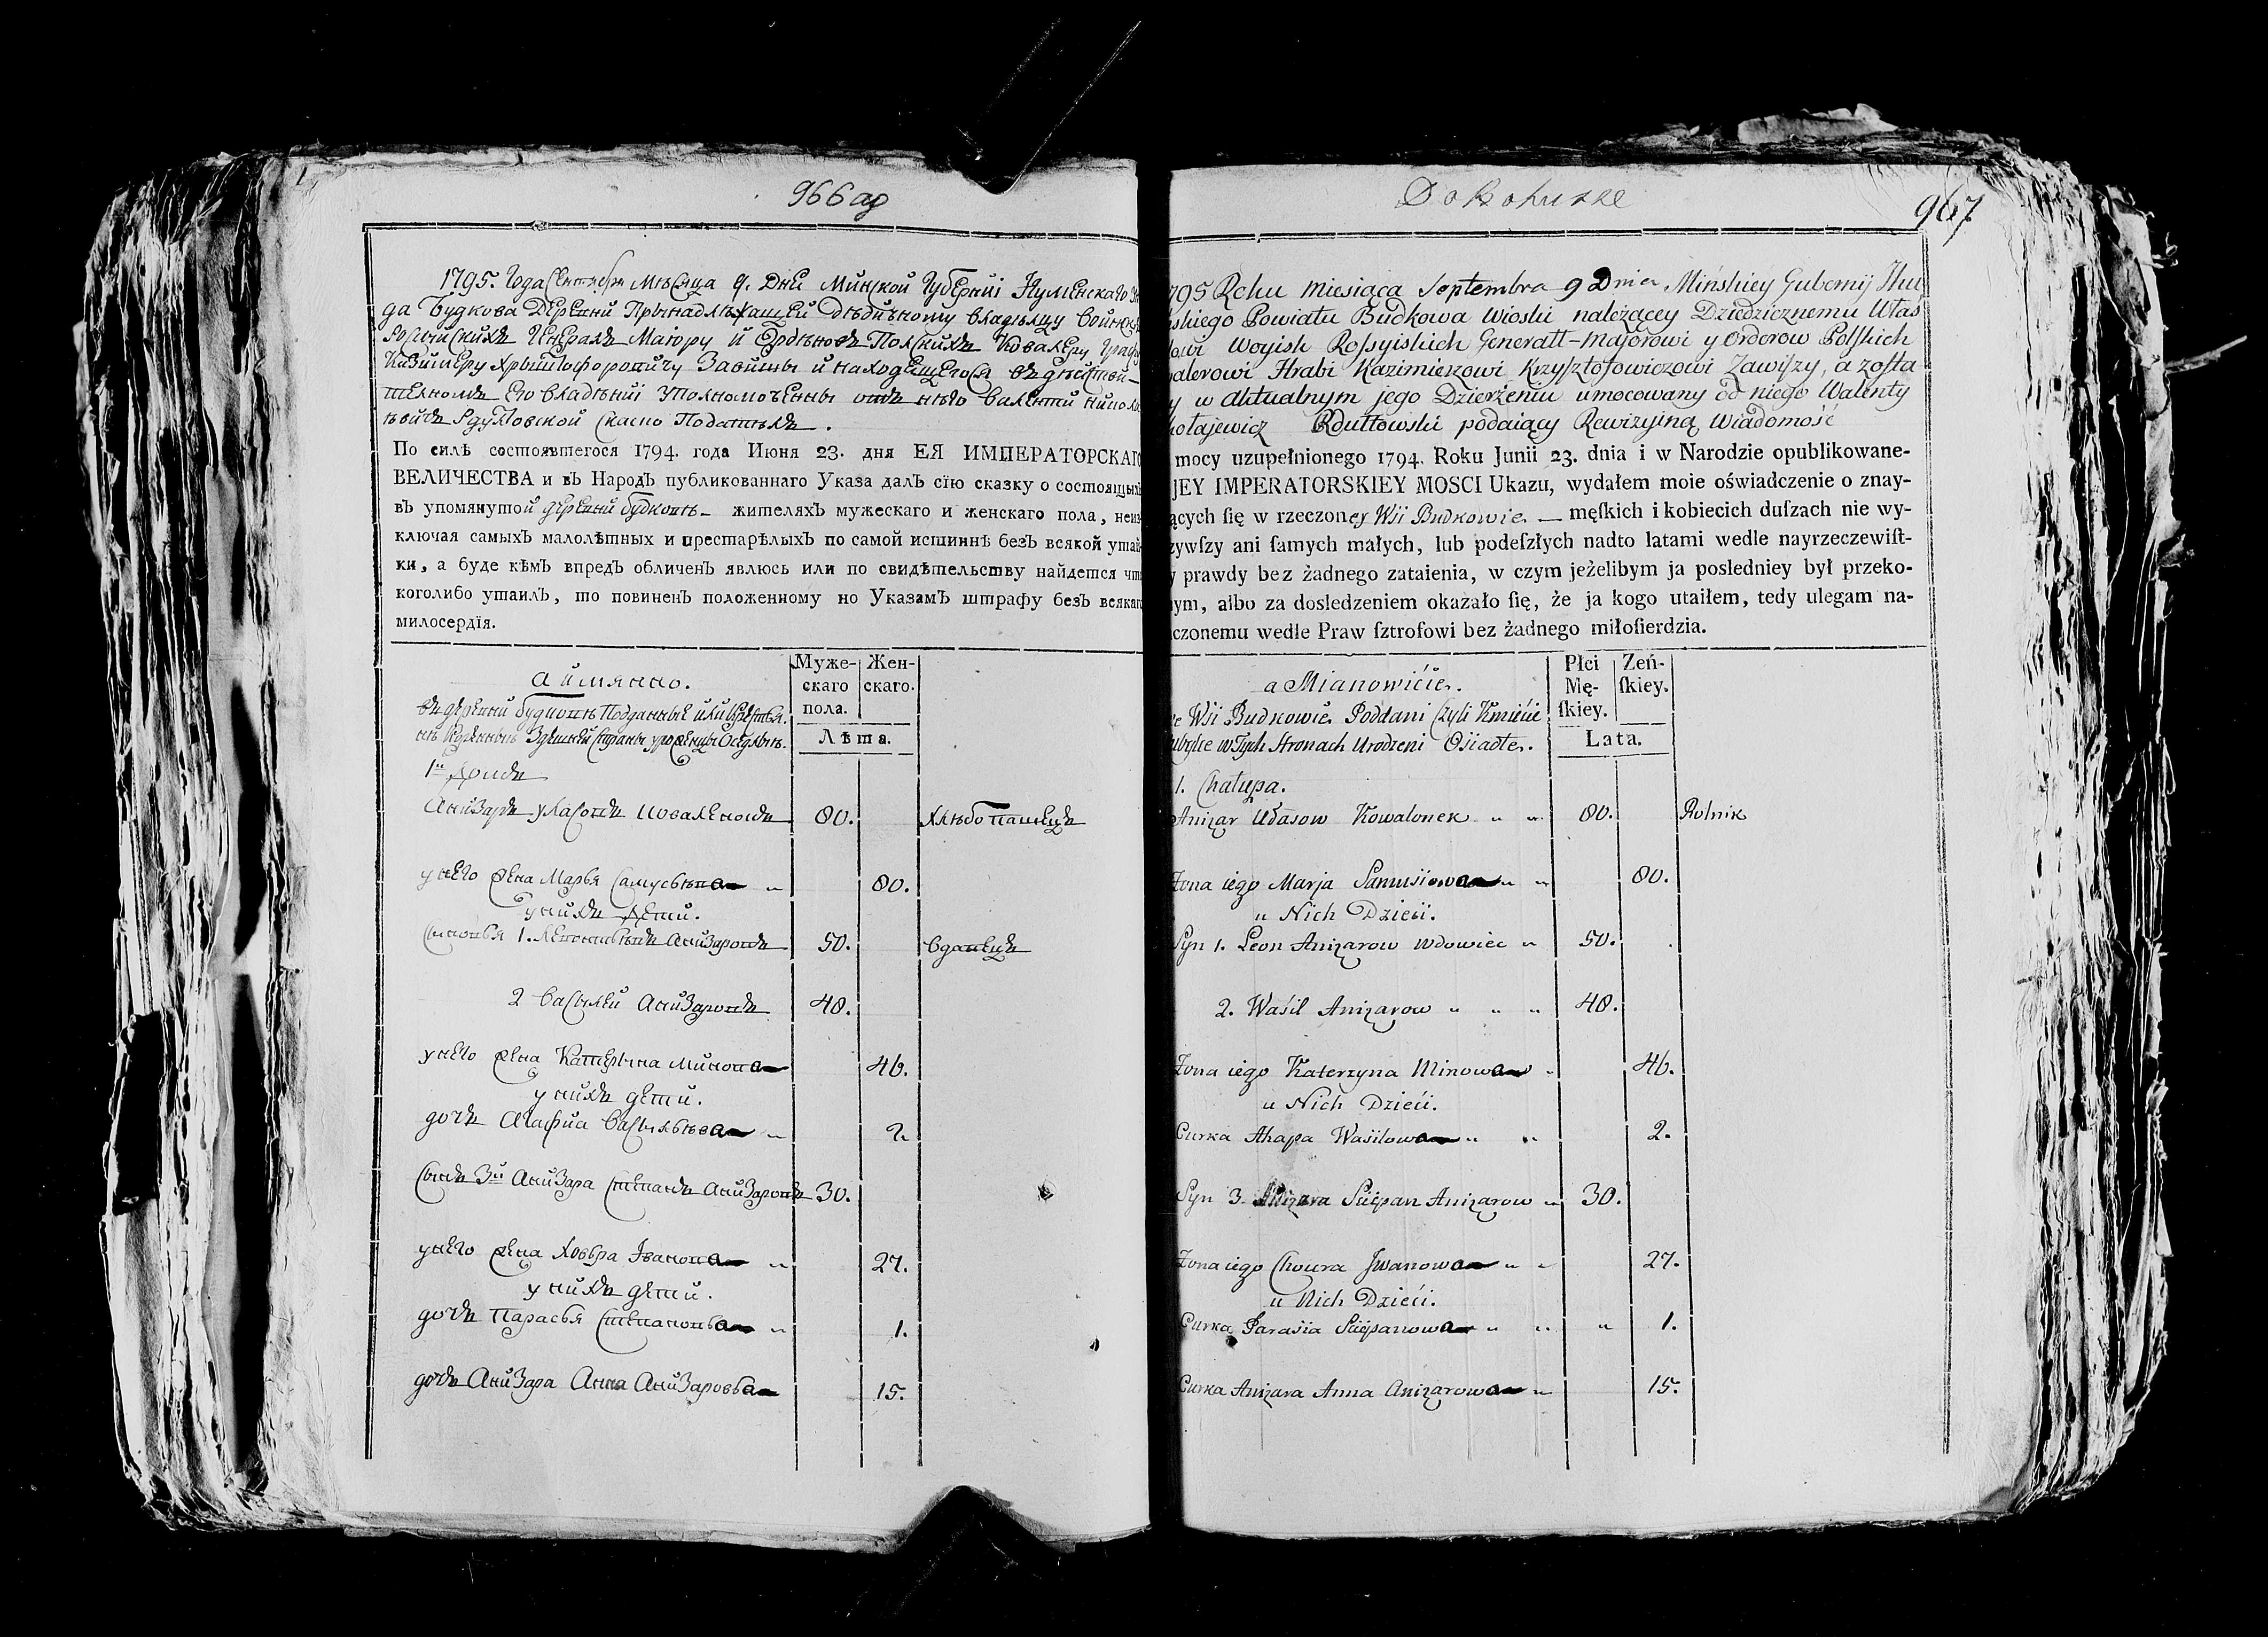 966 об
1795. Года Сентября Мѣсяца 9. Дня Минской Губернiи Игуменскаго уѣз
да Будкова Деревни Принадлѣжащей Дѣдичному владѣлцу войюск
Росыйскихъ Генералъ Маiору и Ордѣновъ Полскихъ Кавалеру Графу
Казимеру Хрыштофоровичу Завишы и находящегося въ дѣйстви-
телномъ его владѣнiи уполномоченны отъ нѣго Валенти Никола
ѣвичъ Рдултовской скаску Податель.
По силѣ состоявтегося 1794. года Июня 23. дня ЕЯ ИМПЕРАТОРСКАГО
ВЕЛИЧЕСТВА и въ Народъ публикованнаго Указа далъ сїю сказку о состоящыхъ
въ упомянутой деревни будковѣ- жителяхъ мужескаго и женскаго пола, неиз
ключая самыхъ малолѣтныхъ и престарѣлыхъ по самой истиннѣ безъ всякой утай
ки, а буде кѣмъ впредъ обличенъ явлюсь или по свидѣтельству найдется что
коголибо утаилъ, то повиненъ положенному но Указамъ штрафу безъ всякаго
милосердїя.
а имянно.
Муже-
скаго
пола.
Жен-
скаго.
Лѣта.
въ деревни будковѣ Подданные или крестья
1й Домъ
Анизаръ уласовъ коваленокъ 80. хлѣбопашецъ
у него жена Марья Самусьева 80.
у нихъ дети.
Сыновья 1. Леонтьѣвъ Анизаровъ 50. вдовецъ
2 Васылей Анизаровъ 48.
у него жена Катерына Минова 46.
у нихъ дети.
дочъ Агафиа Васыльѣва 2
Сынъ 3й Анизара Степанъ Анизаровъ 30.
у него жена Ховьра Iванова 27.
у нихъ дети.
дочъ Парасья Степанова 1.
дочъ Анизара Анна Анизаровва 15.
967
795 Roku miesiąca Septembra 9 Dnia Mińskiey Gubernij Ihu
skiego Powiatu Budkowa wioski należącey Dziedzicznemu Włas
lowi Woyisk Rossyiskich Generatt-majorowi y Orderow Polskich
walerowi Hrabi Kazimierzowi Krzysztofowiczowi Zawiszy, a zosta
y w aktualnym jego Dzierżeniu umocowany od niego Walenty
kołajewicz Rdułtowski podaiący Rewizyiną Wiadomość
mocy uzupełnionego 1794. Roku Junii 23. dnia i w Narodzie opublikowane-
JEY IMPERATORSKIEY MOSCI Ukazu, wydałem moie oświadczenie o znay-
ących ſię w rzeczoney Wśi Budkowie. — męſkich i kobiecich duſzach nie wy-
zywſzy ani ſamych małych, lub podeſzłych nadto latami wedle nayrzeczewiſt-
y prawdy bez żadnego zataienia, w czym jeżelibym ja posledniey był przeko-
nym, albo za dosledzeniem okazało ſię, że ja kogo utaiłem, tedy ulegam na-
czonemu wedle Praw ſztrofowi bez żadnego miłoſierdzia.
a Mianowićie.
Płci
Mę-
ſkiey.
Zeń-
ſkiey.
Lata.
we Wśi Budkowie Poddani czyli Kmiećie
w Tych Stronach Urodzeni Ośiadłe.
1. Chałupa.
Anizar Ułasow Kowalonek 80. Rolnik
Zona iego Marja Samusiowa 80.
u Nich Dzieći.
Syn 1. Leon Anizarow Wdowiec 50.
2. Waśil Anizarow 48.
Zona iego Katerzyna Minowa 46.
u Nich Dzieći.
Curka Ahapa Waśilowa 2.
Syn 3. Anizara Sćiepan Anizarow 30.
Zona iego Chowra Jwanowa 27.
u Nich Dzieći.
Curka Parasia Sćiepanowa 1.
Curka Anizara Anna Anizarowa 15.